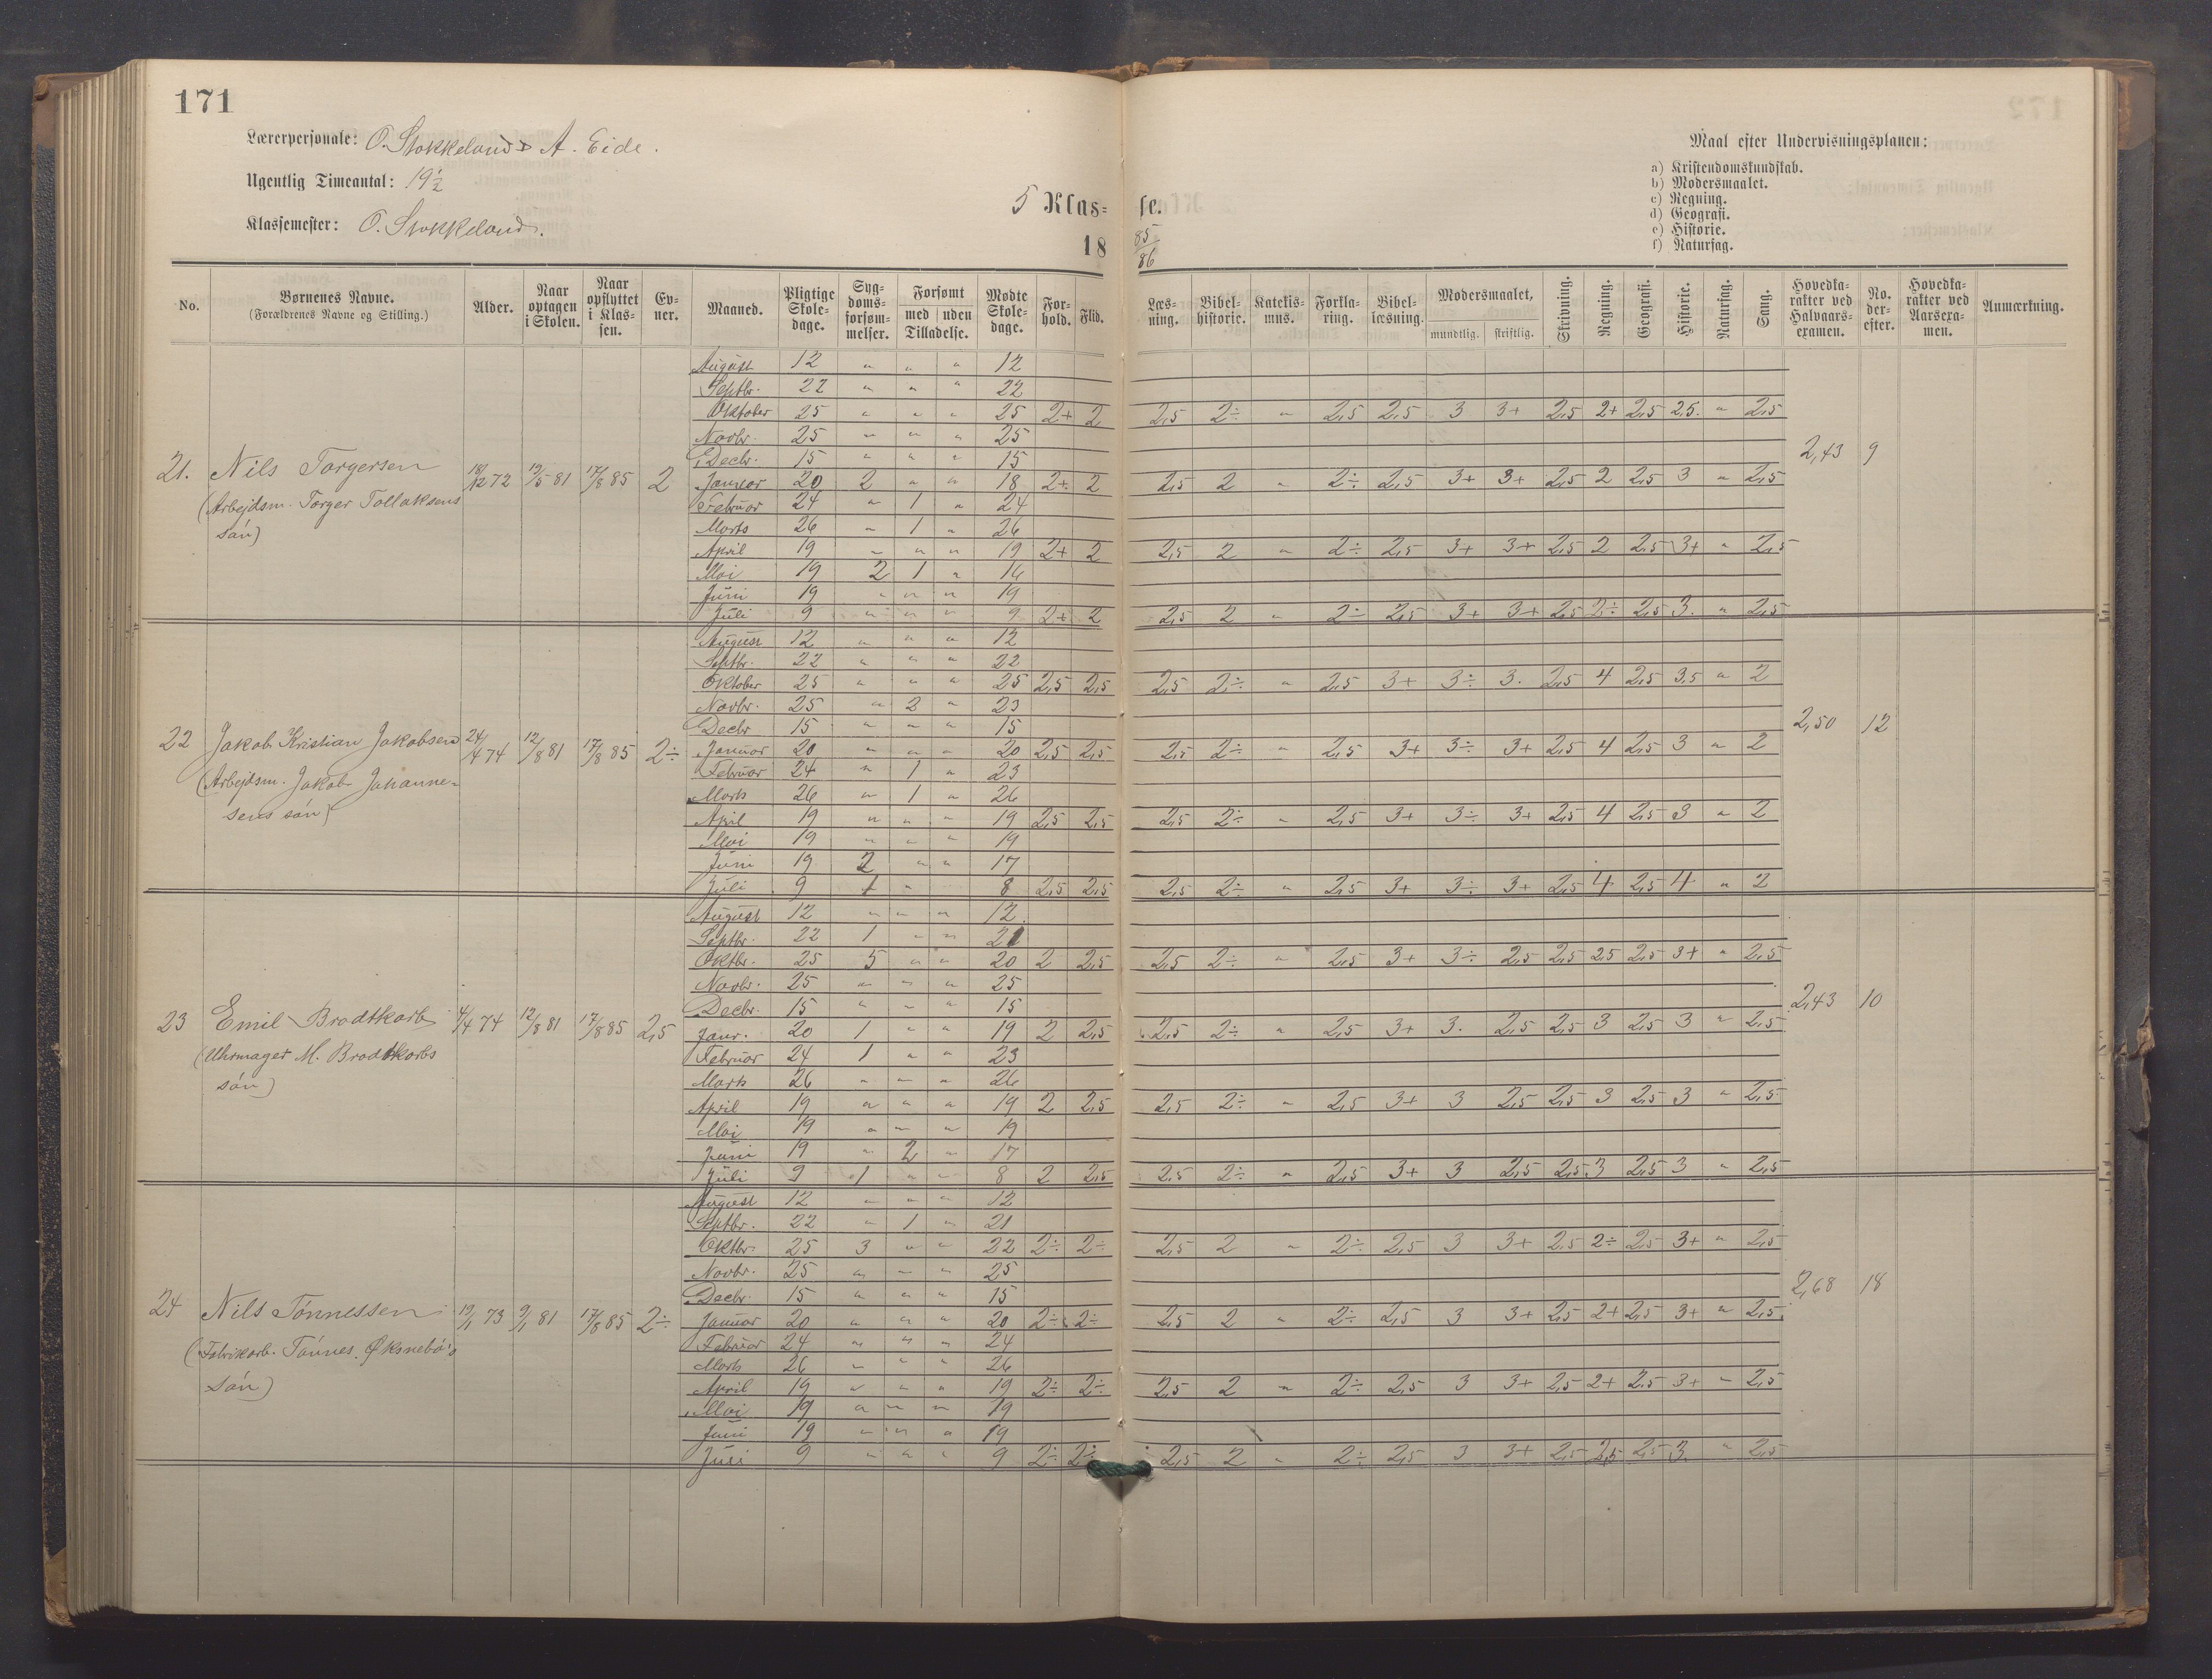 171
Lærerpersonale: O. Stokkeland & A. Eide.
Ugentlig Timeantal: 19½
Klassemester: O. Stokkeland.
5 Klas= se.
18 85/86
Maal efter Undervisningsplanen:
a) Kristendomskundskab.
b) Modersmaalet.
c) Regning.
d) Geografi.
e) Historie.
f) Naturfag.
No. | Børnenes Navne. (Forældrenes Navne og Stilling.) | Alder. | Naar optagen i Skolen. | Naar opflyttet i Klas- sen. | Ev- ner. | Maaned. | Pligtige Skole- dage. | Syg- doms- forsøm- melser. | Forsømt med uden Tilladelse. | Mødte Skole- dage. | For- hold. | Flid. | Læs- ning. | Bibel- historie. | Katekis- mus. | Forkla- ring. | Bibel- læsning. | Modersmaalet, mundtlig. skriftlig. | Skrivning. | Regning. | Geografi. | Historie. | Naturfag. | Sang. | Hovedka- rakter ved Halvaars- examen. | No. der- efter. | Hovedka- rakter ved Aarsexa- men. | Anmærkning.
21. Nils Torgersen 18/12 72 12/5 81 17/8 85 2 2,43 9
(Arbejdsm. Torger Tollaksens
søn)
August 12 " " " 12
Septbr. 22 " " " 22
Oktober 25 " " " 25 2+ 2 2,5 2÷ " 2,5 2,5 3 3+ 2,5 2+ 2,5 2,5. " 2,5
Novbr. 25 " " " 25
Decbr. 15 " " " 15
Januar 20 2 " " 18 2+ 2 2,5 2 " 2÷ 2,5 3+ 3+ 2,5 2 2,5 3 " 2,5
Februar 24 " 1 " 24
Marts 26 " 1 " 26
April 19 " " " 19 2+ 2 2,5 2 " 2÷ 2,5 3+ 3+ 2,5 2 2,5 3+ " 2,5
Mai 19 2 1 " 16
Juni 19 " " " 19
Juli 9 " " " 9 2+ 2 2,5 2 " 2÷ 2,5 3+ 3+ 2,5 2÷ 2,5 3. " 2,5
22 Jakob Kristian Jakobsen 24/4 74 12/8 81 17/8 85 2÷ 2,50 12
(Arbejdsm. Jakob Johanne-
sens søn)
August 12 " " " 12
Septbr. 22 " " " 22
Oktober 25 " " " 25 2,5 2,5 2,5 2÷ " 2,5 3+ 3÷ 3. 2,5 4 2,5 3,5 " 2
Novbr. 25 " 2 " 23
Decbr 15 " " " 15
Januar 20 " " " 20 2,5 2,5 2,5 2÷ " 2,5 3+ 3÷ 3+ 2,5 4 2,5 3 " 2
Februar 24 " 1 " 23
Marts 26 " 1 " 26
April 19 " " " 19 2,5 2,5 2,5 2÷ " 2,5 3+ 3÷ 3+ 2,5 4 2,5 3 " 2
Mai 19 " " " 19
Juni 19 2 " " 17
Juli 9 1 " 8 2,5 2,5 2,5 2÷ " 2,5 3+ 3÷ 3+ 2,5 4 2,5 4 " 2
23 Emil Brodtkorb 4/4 74 12/8 81 17/8 85 2,5 2,43 10
(Uhrmager M. Brodtkorbs
søn)
August 12 " " " 12.
Septbr. 22 1 " " 21
Oktbr. 25 5 " " 20 2 2,5 2,5 2÷ " 2,5 3+ 3÷ 2,5 2,5 2,5 2,5 3+ " 2,5
Novbr. 25 " " " 25
Decbr. 15 " " " 15
Janr. 20 1 " " 19 2 2,5 2,5 2÷ " 2,5 3+ 3. 2,5 2,5 3 2,5 3 " 2,5
Februar 24 1 " " 23
Marts 26 " " " 26
April 19 " " " 19 2 2,5 2,5 2÷ " 2,5 3+ 3 2,5 2,5 3 2,5 3 " 2,5
Mai 19 " " " 19
Juni 19 " 2 " 17
Juli 9 1 " " 8 2 2,5 2,5 2÷ " 2,5 3+ 3 2,5 2,5 3 2,5 3 " 2,5
24 Nils Tønnessen 19/1 73 9/1 81 17/8 85 2÷ 2,68 18
(Fabrikarb. Tønnes Øksnebø's
søn)
August 12 " " " 12
Septbr. 22 " 1 " 21
Oktbr. 25 3 " " 22 2÷ 2÷ 2,5 2 " 2÷ 2,5 3 3+ 2,5 2÷ 2,5 3+ " 2,5
Novbr. 25 " " " 25
Decbr. 15 " " " 15
Januar 20 " " " 20 2÷ 2÷ 2,5 2 " 2÷ 2,5 3 3+ 2,5 2+ 2,5 3+ " 2,5
Februar 24 " " " 24
Marts 26 " " " 26
April 19 " " " 19 2÷ 2÷ 2,5 2 " 2÷ 2,5 3 3+ 2,5 2+ 2,5 3+ " 2,5
Mai 19 " " " 19
Juni 19 " " " 19
Juli 9 " " " 9 2÷ 2÷ 2,5 2 " 2÷ 2,5 3 3+ 2,5 2,5 2,5 3. " 2,5